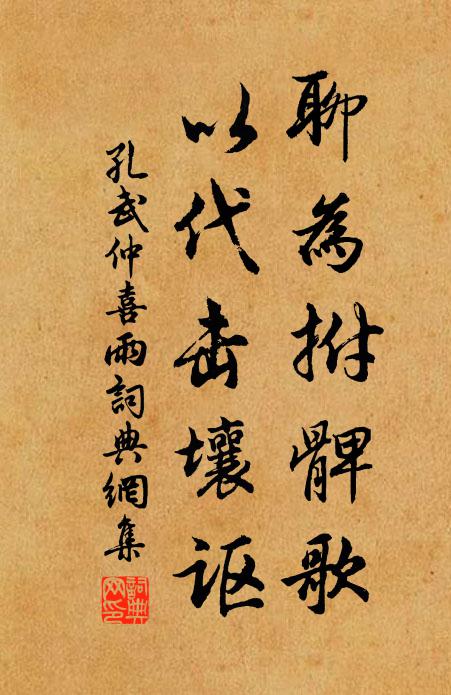 聊為拊髀歌
以代击壤讴
孔武仲喜雨詞典網集
詞典網印